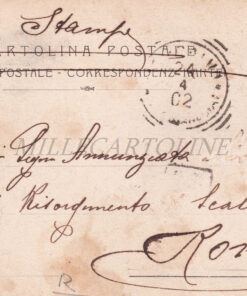 Stampe
CARTOLINA POSTALE
POSTALE - CORRESPONDENZ-KARTE
24
4
02
MILLECARTOLINE
Sign Annunziata
Risorgimento Scal
Rom
R